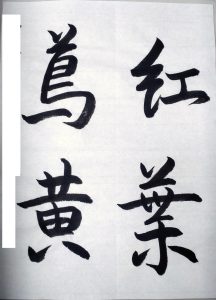 紅葉
蔦黄